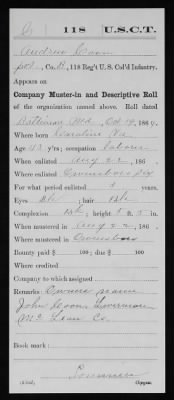 C | 118 | U.S.C.T.
Andrew Coon
Pvt., Co. B, 118 Reg't U. S. Col'd Infantry.
Appears on
Company Muster-in and Descriptive Roll
of the organization named above. Roll dated
Baltimore Md. Oct 19, 1864.
Where born
Age 43 y'rs; occupation labour
When enlisted Aug 22, 186
Where enlisted Owensboro Ky
For what period enlisted 3 years.
Eyes Blk; hair Blk
Complexion Blk; height 5 ft. 5 in.
When mustered in Aug 22, 186
Where mustered in Owensboro
Bounty paid $ 100; due $ 100
Where credited
Company to which assigned
Remarks: Owners name
John Coon Livermore
McLean Co.
Book mark:
(342) Copyist.